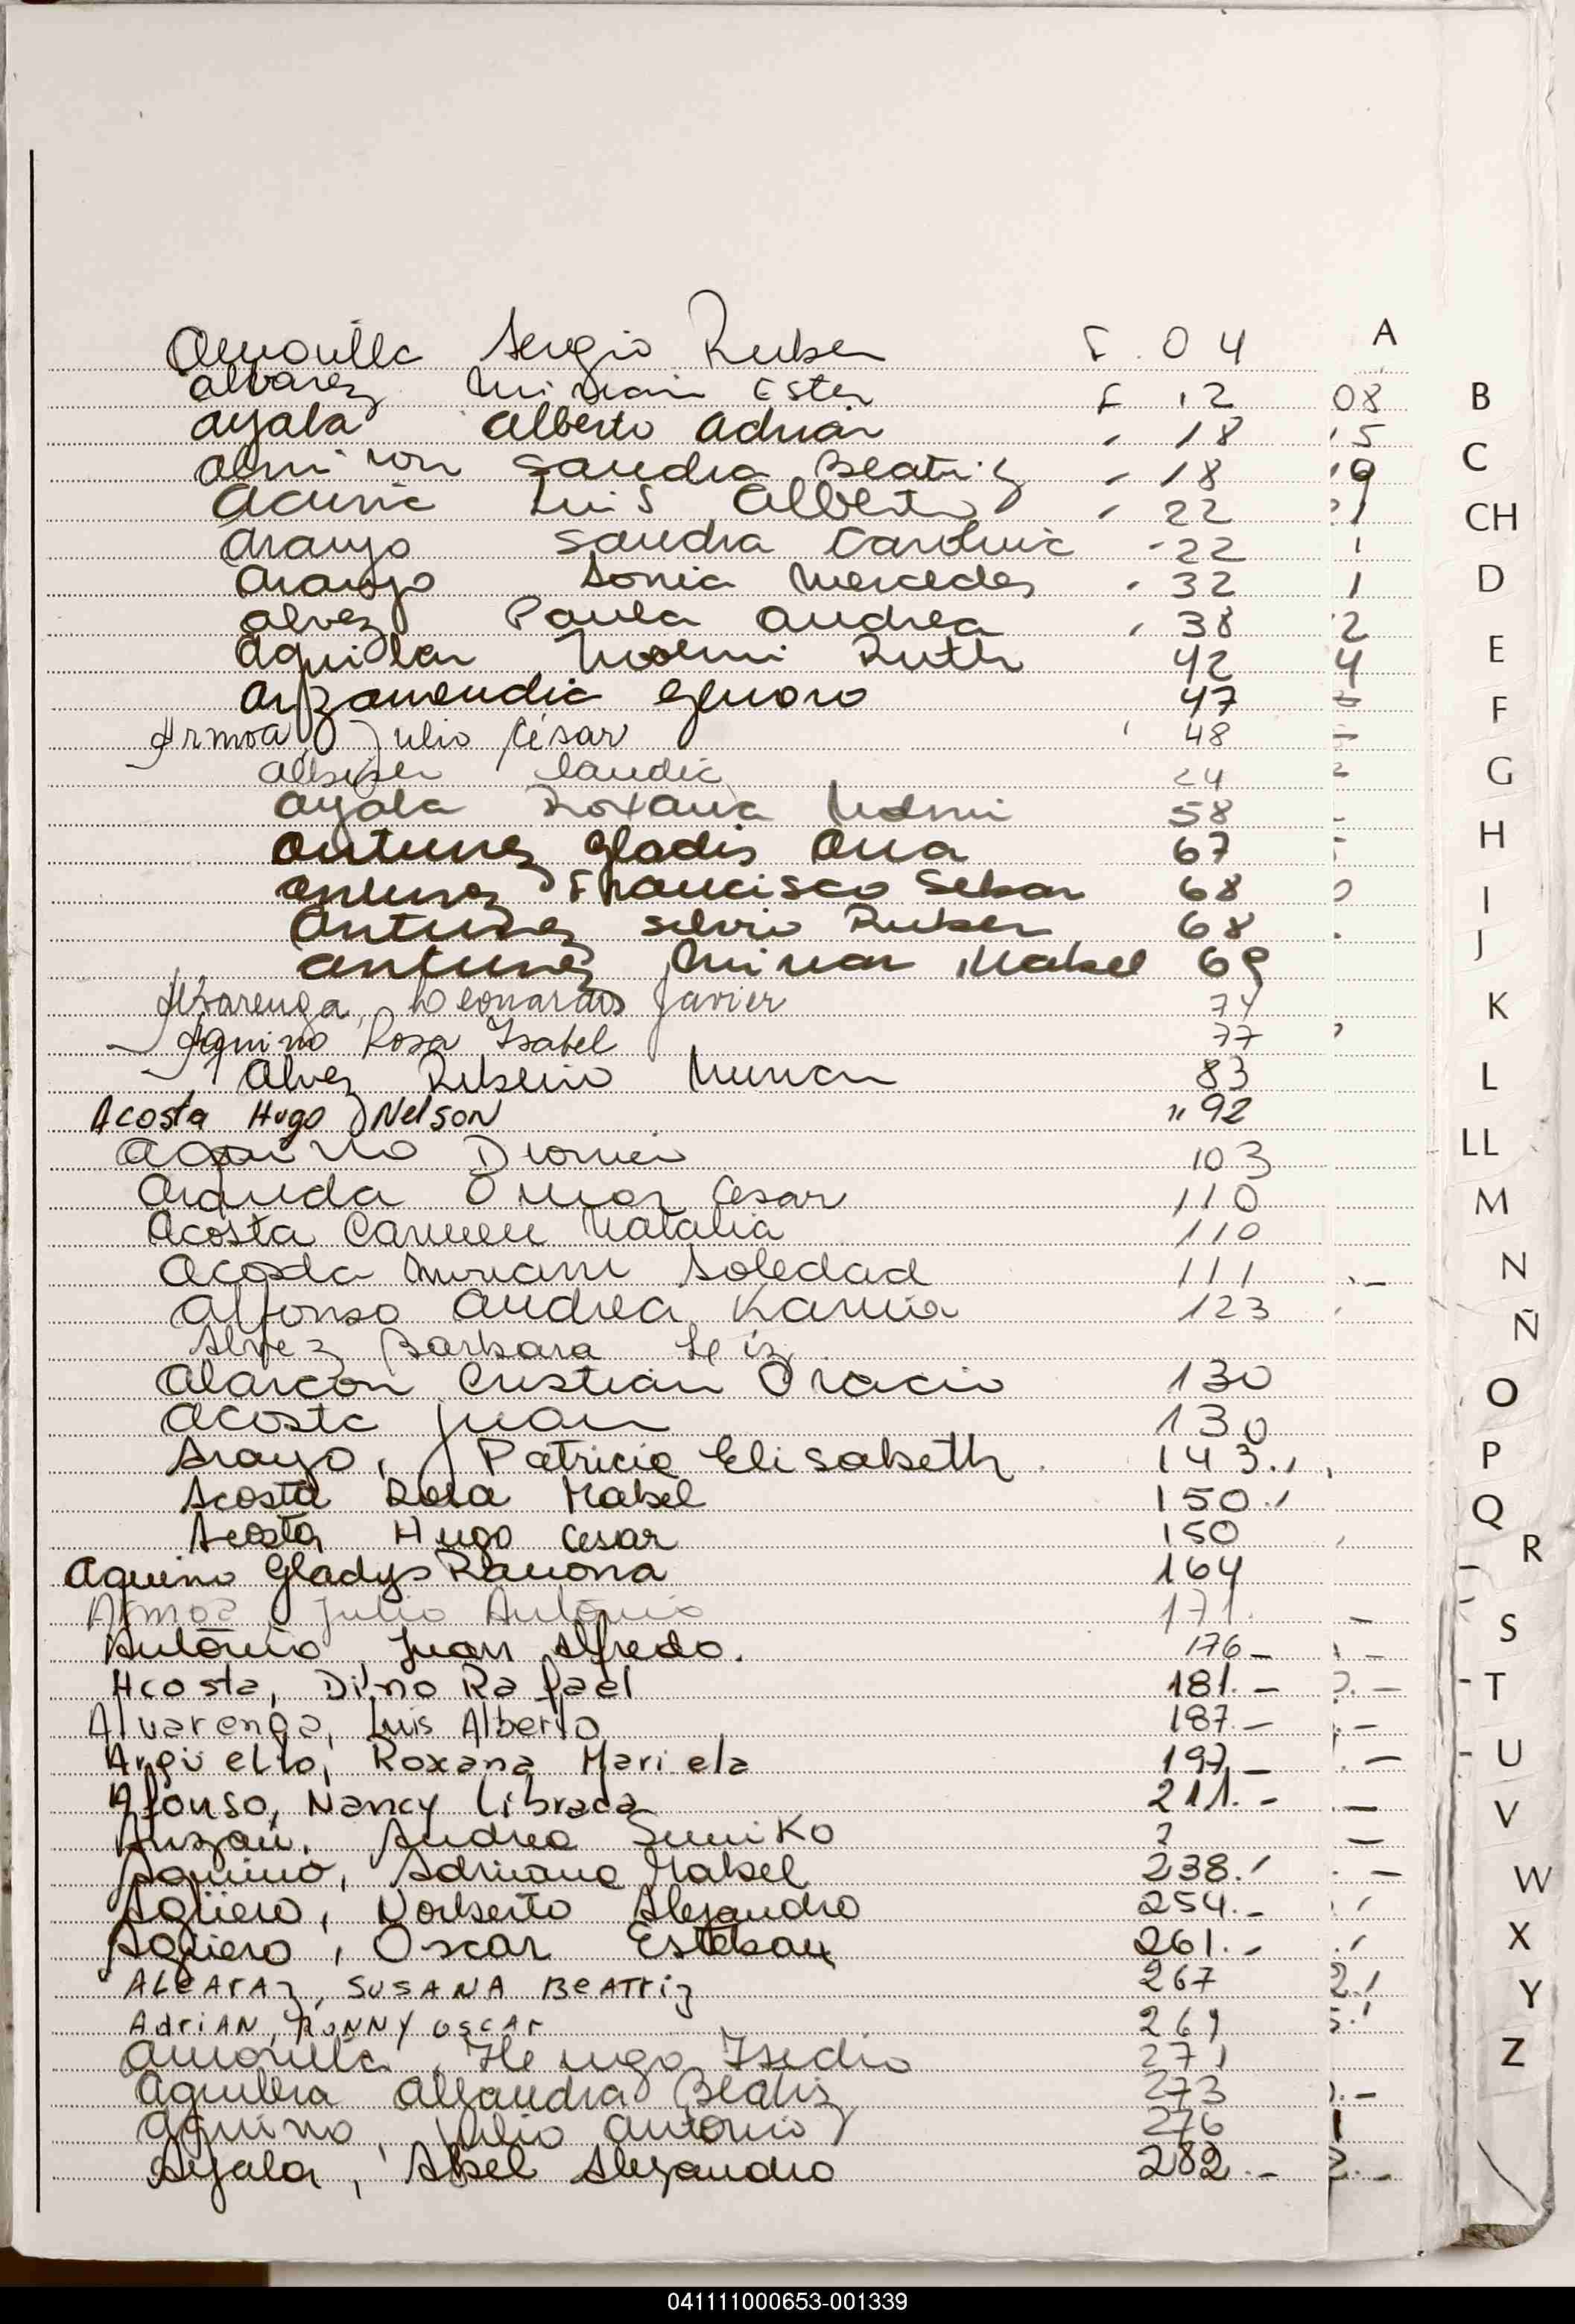 Amarilla Sergio Ruben F. 04
Alvarez Miriam Ester F 12
Ayala Alberto Adrian 18
Almiron Sandra Beatriz 18
Acuña Luis Alberto 22
Araujo Sandra Carolina 22
Araujo Sonia Mercedes 32
Alvez Paula Andrea 38
Aguilar Noemi Ruth 42
Arzamendia Genaro 47
Armoa, Julio César 48
Claudia 24
Ayala Roxana Noemi 58
Antunez Gladis Ana 67
Antunez Francisco 68
Antunez Silvio Ruben 68
Antunez Miriam Mabel 69
Alvarenga, Leonardo Javier 74
Aquino Rosa Isabel 77
Alvez Ribeiro Miriam 83
Acosta Hugo Nelson " 92
Aquino 103
Aranda Omar Cesar 110
Acosta Carmen Natalia 110
Acosta Miriam Soledad 111
Alfonso Andrea Karina 123
Alvez Barbara
Alarcon Cristian Oracio 130
Acosta Juan 130
Arayo, Patricia Elisabeth 143.
Acosta Rosa Mabel 150.
Acosta Hugo Cesar 150
Aquino Gladys Ramona 164
Armoa, Julio Antonio 171.
Antonio, Juan Alfredo. 176_
Acosta, Dilno Rafael 181._
Alvarenga, Luis Alberto 187._
Argüello, Roxana Mariela 197_
Afonso, Nancy Librada 211.-
Andrea Sumiko
Aquino, Adriana Mabel 238.
Agüero, Norberto Alejandro 254._
Agüero, Oscar Esteban 261.-
ALCARAZ, SUSANA BEATRIZ 267
AdriAN, RONNY OSCAR 269
Amarilla, Hugo Isidio 271
Aguilera Alejandra Beatriz 273
Aquino, Julio Antonio 276
Ayala, Abel Alejandro 282._
A
B
C
CH
D
E
F
G
H
I
J
K
L
LL
M
N
Ñ
O
P
Q
R
S
T
U
V
W
X
Y
Z
08
15
19
041111000653-001339